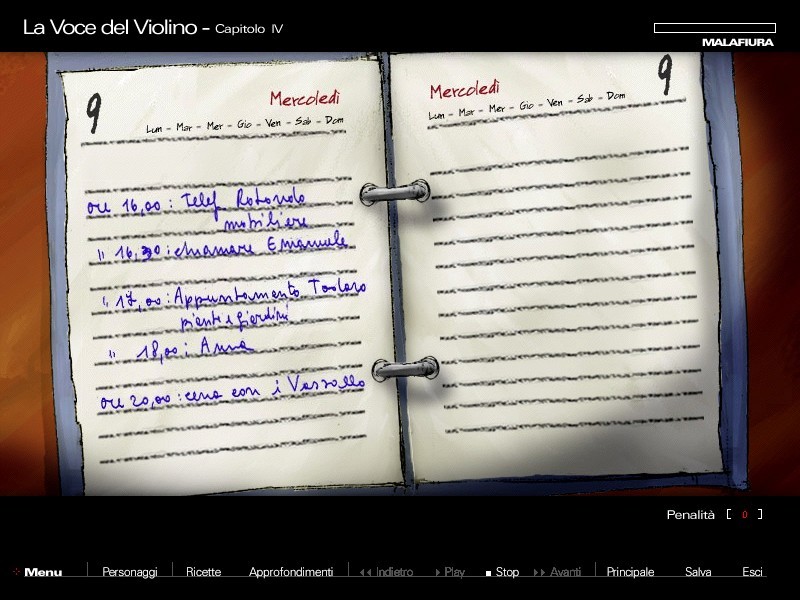 La Voce del Violino - Capitolo IV
MALAFIURA
9 Mercoledì
Lun - Mar - Mer - Gio - Ven - Sab - Dom
ore 16,00 : telef Rotondo
mobiliere
" 16,30 : chiamare Emanuele
" 17,00 : Appuntamento Todaro
piante e giardini
" 18,00 : Anna
ore 20,00 : cena con i Vassallo
Mercoledì 9
Lun - Mar - Mer - Gio - Ven - Sab - Dom
Penalità [ 0 ]
Menu Personaggi Ricette Approfondimenti Indietro Play Stop Avanti Principale Salva Esci